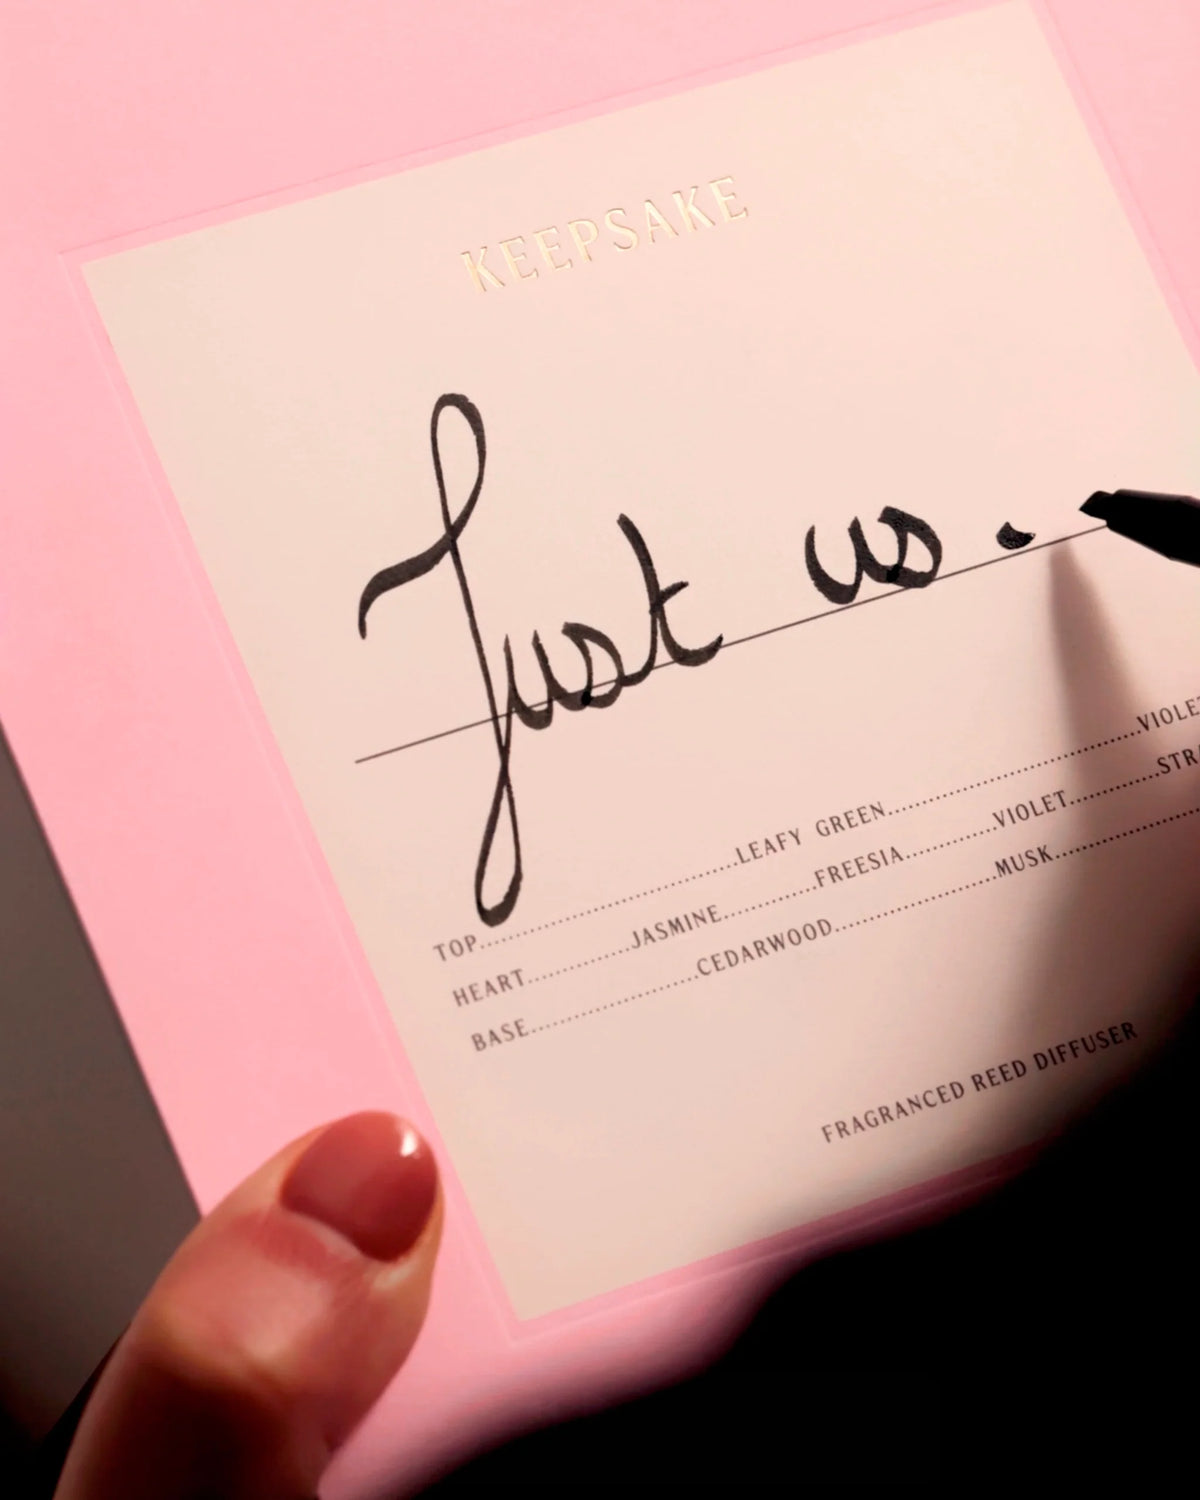 KEEPSAKE
Just us.
TOP....................................LEAFY GREEN....................................
HEART...............JASMINE.............FREESIA.............VIOLET.............
BASE.......................CEDARWOOD.......................MUSK.......................
FRAGRANCED REED DIFFUSER